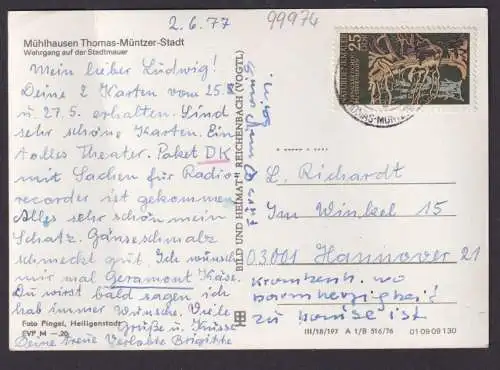 2.6.77
99974
Mühlhausen Thomas-Müntzer-Stadt
Wehrgang auf der Stadtmauer
Mein lieber Ludwig!
Deine 2 Karten vom 25.5
u. 27.5 erhalten. Sind
sehr schöne Karten. Ein
tolles Theater. Paket DK
mit Sachen für Radio
recorder ist gekommen
Alles sehr schön mein
Schatz. Gänseschmalz
schmeckt gut. Ich wünsch
mir mal Geramont Käse.
Du wirst bald sagen ich
hab immer Wünsche. Viele
Grüße u. Küsse
Deine treue Verlobte Brigitte
Foto Pingel, Heiligenstadt
EVP M —,20
BILD UND HEIMAT REICHENBACH (VOGTL)
25
DDR
THOMAS-MÜNTZ
L. Richardt
Im Winkel 15
03001 Hannover 21
krankenh. wo
barmherzigkeit
zu hause ist
III/18/197 A 1/B 516/76 01 09 09 130